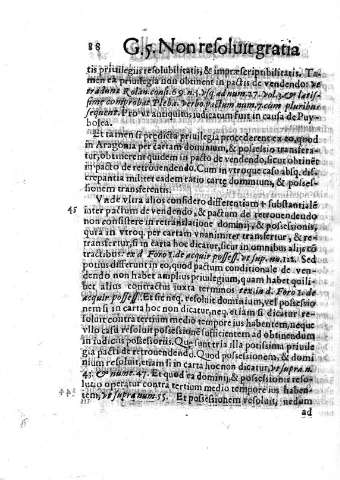 88 G.5. Non resoluit gratia
tis priuilegiis resolubilitatis, & impræscriptibilitatis. Ta-
men ea priuilegia non obtinent in pactis de vendendo: ve
traduna Rolan. cons. 69. n. 3. vsq; ad num. 27. vol. 3. & latis-
sime comprobat Pleba. verbo pactum num. 7. cum pluribus
sequent. Pro vt antiquitus iudicatum fuit in causa de Puy-
bolea.
Et tamen si prædicta priuilegia procederent ex eo, quod
in Aragonia per cartam dominium, & possessio transfera-
tur, obtinerent quidem in pacto de vendendo, sicut obtinēt
in pacto de retrouendendo. Cum in vtroque casu absq; dis-
crepantia militet eadem ratio cartę dominium, & posses-
sionem transferentis.
Vnde vltra alios considero differentiam substantialē
45 inter pactum de vendendo, & pactum de retrouendendo
non consistere in retranslatione dominij, & possessionis,
quia in vtroq; per cartam venit transfertur, & re
transfertur, si in carta hoc dicatur, sicut in omnibus alijs cō
tractibus: ex d. Foro 1. de acquir. possess. vt sup. nu. 12. Sed
potius differunt in eo, quod pactum conditionale de ven-
dendo non habet amplius priuilegium, quam habet quili-
bet alius contractus iuxta terminos tex. in d. Foro 1. de
acquir. possess. Et sic neq. resoluit dominium, vel possessio
nem si in carta hoc non dicatur, neq. etiam si dicatur re-
soluit contra tertium medio tempore ius habentem, neque
vllo casu resoluit possessionem sufficientem ad obtinendum
in iudiciis possessoriis. Quę sunt tria illa potissima priuile
gia pacti de retrouendendo. Quod possessionem, & domi
nium resoluit, etiam si in carta hoc non dicatur, vt supra n.
45. & num. 47. Et quod ea dominij, & possessionis reso-
lutio operatur contra tertium medio tempore ius haben-
tem, vt supra num. 55. Et possessionem resoluit, nedum
ad